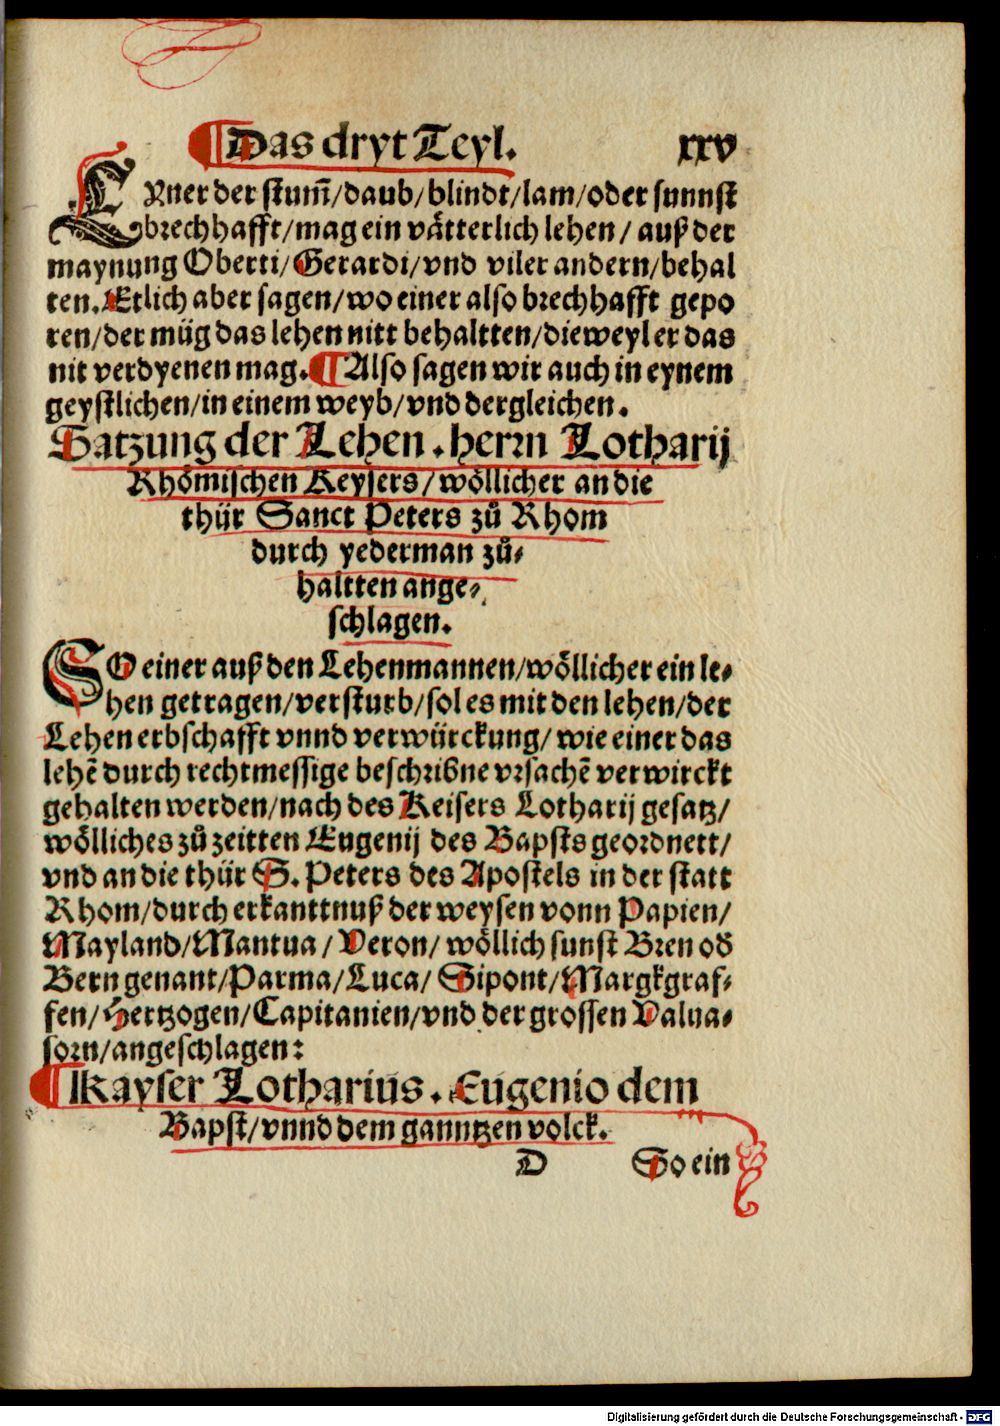 ¶ Das dryt Teyl. xxv
EYner der stum̃/daub/blindt/lam/oder sunnst
brechhafft/mag ein vätterlich lehen/ auß der
maynung Oberti/Gerardi/vnd viler andern/behal
ten. Etlich aber sagen/wo einer also brechhafft gepo
ren/der müg das lehen nitt behaltten/dieweyl er das
nit verdyenen mag. ¶ Also sagen wir auch in eynem
geystlichen/in einem weyb/vnd dergleichen.
Satzung der Lehen. herrn Lotharij
Rhömischen Keysers/wöllicher an die
thür Sanct Peters zů Rhom
durch yederman zů⸗
haltten ange⸗
schlagen.
SO einer auß den Lehenmannen/wöllicher ein le⸗
hen getragen/versturb/sol es mit den lehen/der
Lehen erbschafft vnnd verwürckung/wie einer das
lehē durch rechtmessige beschribne vrsachē verwirckt
gehalten werden/nach des Keisers Lotharij gesatz/
wölliches zů zeitten Eugenij des Bapsts geordnett/
vnd an die thür S. Peters des Apostels in der statt
Rhom/durch erkanttnuß der weysen vonn Papien/
Mayland/Mantua/ Veron/ wöllich sunst Bren oď
Bern genant/Parma/Luca/ Sipont/Margkgraf⸗
fen/Hertzogen/Capitanien/vnd der grossen Valua⸗
sorn/angeschlagen:
¶ Kayser Lotharius. Eugenio dem
Bapst/vnnd dem ganntzen volck.
D So ein
Digitalisierung gefördert durch die Deutsche Forschungsgemeinschaft - DFG